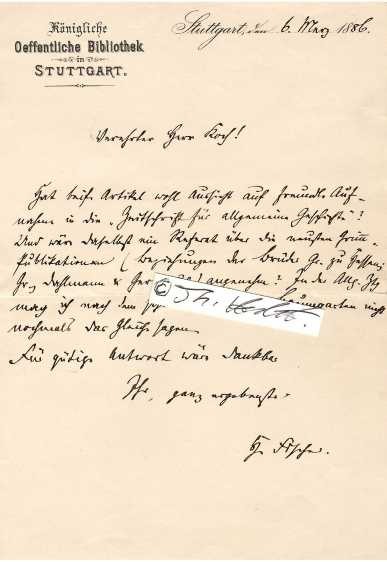 Königliche
Oeffentliche Bibliothek
in
STUTTGART.
Stuttgart, den 6. März 1886.
Verehrter Herr Koch!
Hat beif. Artikel wohl Aussicht auf freundl. Auf-
nahme in die „Zeitschrift für allgemeine Geschichte"?
Und wäre daselbst ein Referat über die neusten Grimm-
Publikationen (Beziehungen der Brüder G. zu Hessen;
Gr., Dahlmann & angenehm? In der Allg. Ztg
mag ich nach dem Baumgarten nicht
nochmals das Gleiche sagen.
Für gütige Antwort wäre dankbar
Ihr ganz ergebenster
H. Fischer.
©